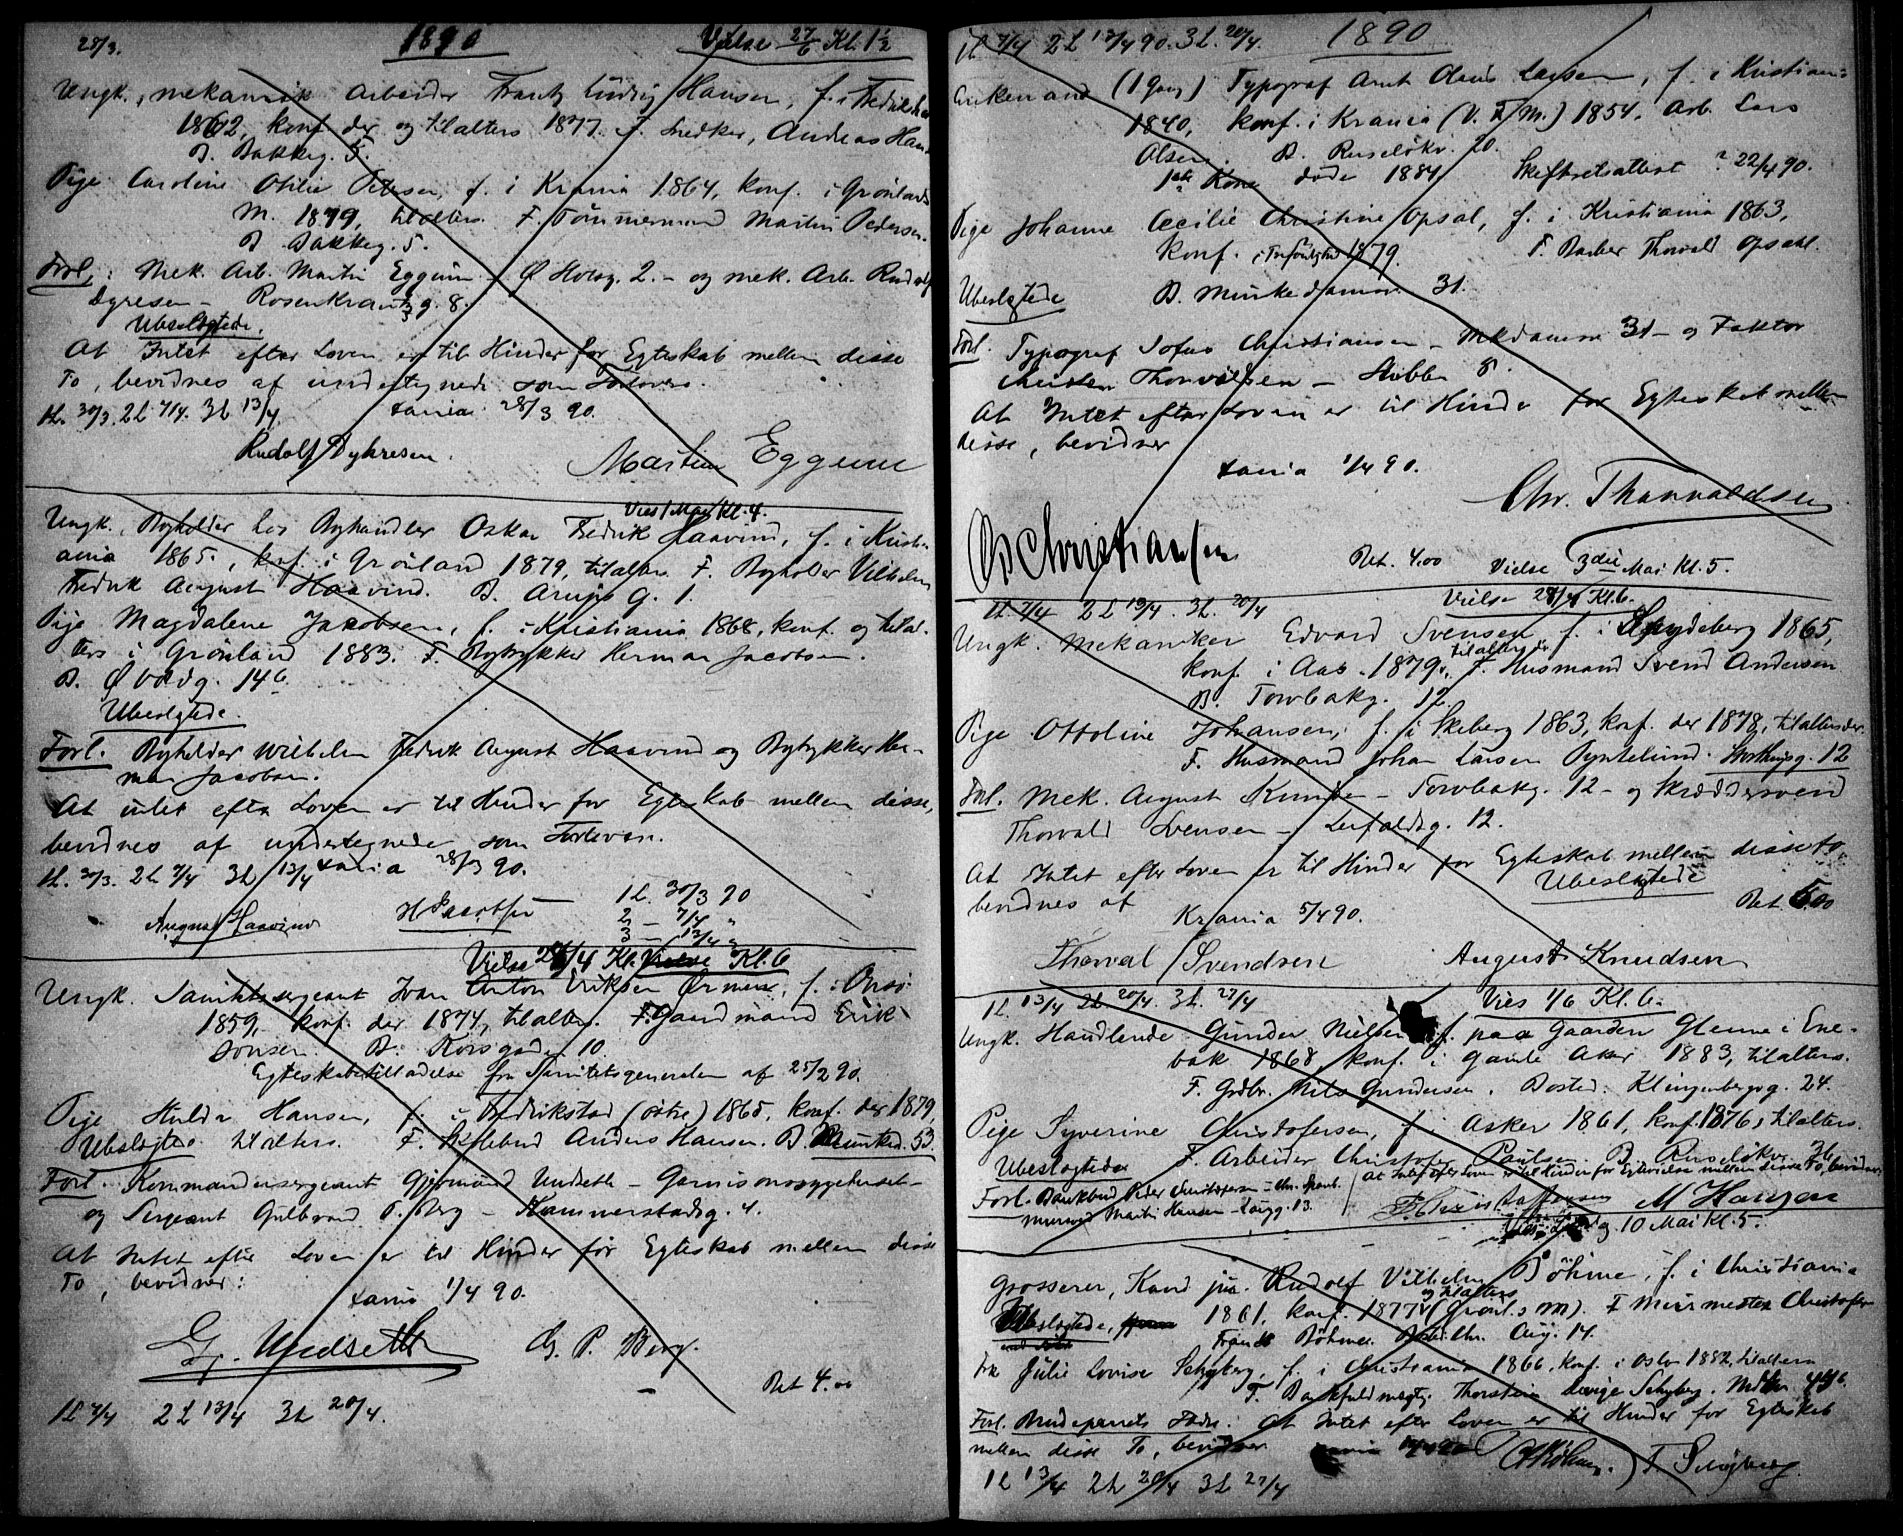 28/3. 1890 Vielse 27/6 Kl. 1½
Ungk., mekanisk Arbeider Frantz Ludvig Hansen, f. i Fredrikshald
1862, konf. der og tilalters 1877. F. Snedker, Andreas Hansen
B. Bakkeg. 5.
Pige Caroline Otilie Petersen, f. i Krania 1864, konf. i Grønlands
M. 1879, tilalters. F. Tømmermand Martin Pedersen.
B. Bakkeg. 5.
Forl.: Mek. Arb. Martin Eggum - Ø Holsg. 2. - og mek. Arb. Rudolf
Dyresen - Rosenkrantzg. 8.
Ubeslægtede.
At Intet efter Loven er til Hinder for Egteskab mellem disse
To, bevidnes af undertegnede som Forlovere.
1L. 30/3. 2L 7/4. 3L 13/4 Xania 28/3 90.
Rudolf Dyhresen. Martin Eggum
Viet 1 Mai Kl. 4.
Ungk. Bogholder hos Boghandler Oskar Fredrik Haavind, f. i Kristi-
ania 1865, konf. i Grønland 1879, tilalters. F. Bogholder Vilhelm
Fredrik August Haavind. B. Arups G. 1.
Pige Magdalene Jacobsen, f. i Kristiania 1868, konf. og tilal-
ters i Grønland 1883. F. Bogtrykker Herman Jacobsen.
B. Ø Voldg. 14 b
Ubeslgtede.
Forl. Bogholder Wilhelm Fredrik August Haavind og Bogtrykker Her-
man Jacobsen.
At intet efter Loven er til Hinder for Egteskab mellem disse,
bevidnes af undertegnede som Forlovere.
1L. 30/3. 2L 7/4 3L 13/4 Xania 28/3 90.
August Haavind H Jacobsen 1L. 30/3 90
2 - 7/4 "
3 - 13/4 "
Vielse 28/4 Kl. Vielse Kl. 6
Ungk. Sanitetssergeant Ivar Anton Eriksen Ørmen, f. i Onsø
1859, konf. der 1874, tilalters. F. Gaardmand Erik
Jonsen. B. Korsgaden 10.
Egteskabstilladelse fra Sanitetsgeneralen af 25/2 90.
Pige Hulda Hansen, f. i Fredrikstad (østre) 1865, konf. der 1879
Ubeslægtede tilalters. F. Anders Hansen. B. Munked. 53.
Forl. Kommandersergeant Gjermund Undseth - Garnisonssygehuset -
og Sergeant Gulbrand P. Berg - Hammerstadsg. 4.
At Intet efter Loven er til Hinder for Egteskab mellem disse
To, bevidner:
Xania 1/4 90.
Gj. Undseth G. P. Berg.
Bet 4.00
1L 7/4 2L 13/4 3L 20/4.
1L 7/4 2L 13/4 90. 3L. 20/4. 1890
Enkemand (1 Gang) Typograf Arnt Olaus Larsen, f. i Kristiania
1840, konf. i Krania (V. F. M.) 1854. Arb. Lars
Olsen. B. Ruseløkv. 20.
1ste Kone døde 1884 Skifteretsattest 22/4 90.
Pige Johanne Cecilie Christine Opsal, f. i Kristiania 1863,
konf. i Trefoldighed 1879. F. Barber Thorvald Opsahl.
Ubeslgtede B. Munkedamsv. 31.
Forl. Typograf Sofus Christiansen - Mkdamsv 31 - og Faktor
Christen Thorvaldsen - Stubben 8.
At Intet efter Loven er til Hinder for Egteskab mellem
disse, bevidner
Xania 1/4 90.
Chr. Thorvaldsen
S Christiansen Bet. 4.00 Vielse 3die Mai Kl. 5.
1L. 7/4 2L 13/4. 3L. 20/4 Vielse 28/4 Kl. 6.
Ungk. Mekaniker Edvard Svensen f. i Spydeberg 1865,
konf. i Aas 1879, tilalters der. F. Husmand Svend Andersen
B. Torvbakg. 12.
Pige Ottoline Johansen, f. i Skeberg 1863, konf. der 1878, tilalters der.
F. Husmand Johan Larsen Pyntelund. Storthingsg. 12
Forl. Mek. August Knudsen - Torvbakg. 12 - og Skræddersvend
Thorvald Svensen - Leifaldsg. 12.
At Intet efter Loven er til Hinder for Egteskab mellem disse to
bevidnes af Ubeslægtede
Krania 5/4 90. Bet. 5.00
Thorval Svendsen August Knudsen
1L. 13/4 2L 20/4. 3L 27/4 Vies 1/6 Kl. 6.
Ungk. Handlende Gunder Nielsen f. paa Gaarden Glenne i Ene-
bak 1868, konf. i Gamle Aker 1883, tilalters.
F. Grdbr. Nils Gundersen. Bosted: Klingenbergg. 24.
Pige Syverine Christofersen, f. i Asker 1861, konf. 1876, tilalters.
Ubeslægtede F. Arbeider Christofer Paulsen. B. Ruseløkv. 36
Forl. Peder Christofersen / at Intet efter Loven er til Hinder for Egteskab mellem disse To, bevidner
Murersvend Martin Hansen - 13. P. Christoffersen M Hansen
10 Mai Kl. 5.
Grosserer, Kand. jur. Rudolf Vilhelm Bøhme, f. i Christiania
Ubeslægtede, 1861, konf. 1877 og tilalters (Grønl. M). F Murmester Christofer
Frantz Bøhme. Bosted: Chr. Aug. 14.
Frk Julie Lovise Schyberg, f. i Christiania 1866, konf. i Oslo 1882, tilalters
F. Bankfuldmægtig Thorstein Schyberg.
Forl. Brudeparrets Fædre. At Intet efter Loven er til Hinder for Egteskab
mellem disse To, bevidner
1L 13/4 2L 20/4 3L 27/4